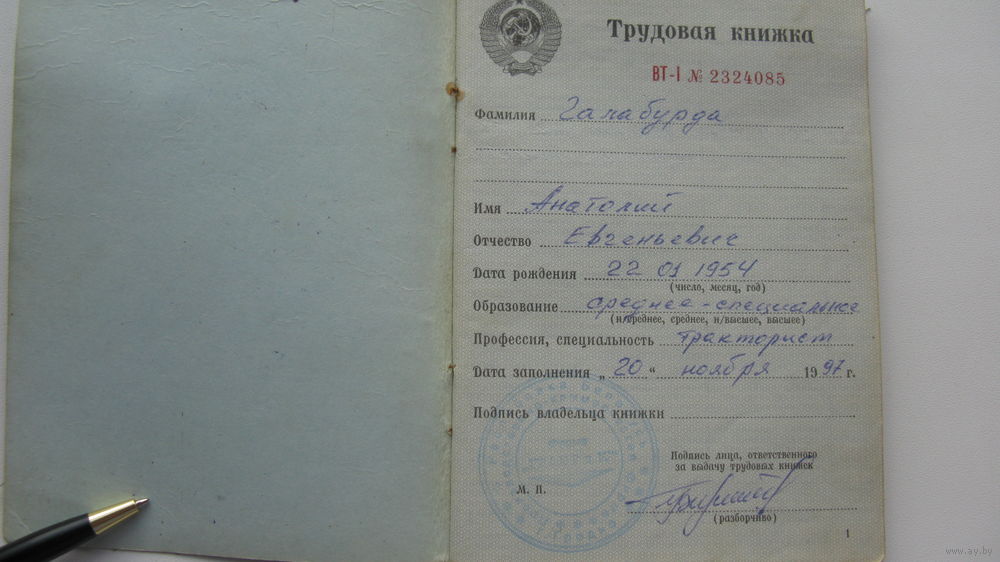 Трудовая книжка
ВТ-I № 2324085
Фамилия Галабурда
Имя Анатолий
Отчество Евгеньевич
Дата рождения 22 01 1954
(число, месяц, год)
Образование среднее-специальное
(н/среднее, среднее, н/высшее, высшее)
Профессия, специальность тракторист
Дата заполнения „ 20 “ ноября 1997 г.
Подпись владельца книжки
Подпись лица, ответственного
за выдачу трудовых книжек
М. П.
(разборчиво)
1
www.ay.by